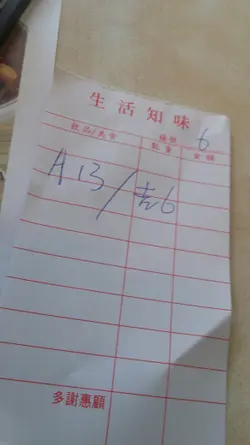 生活知味
檯號 6
飲品/美食 數量 金額
A13/吉6
多謝惠顧